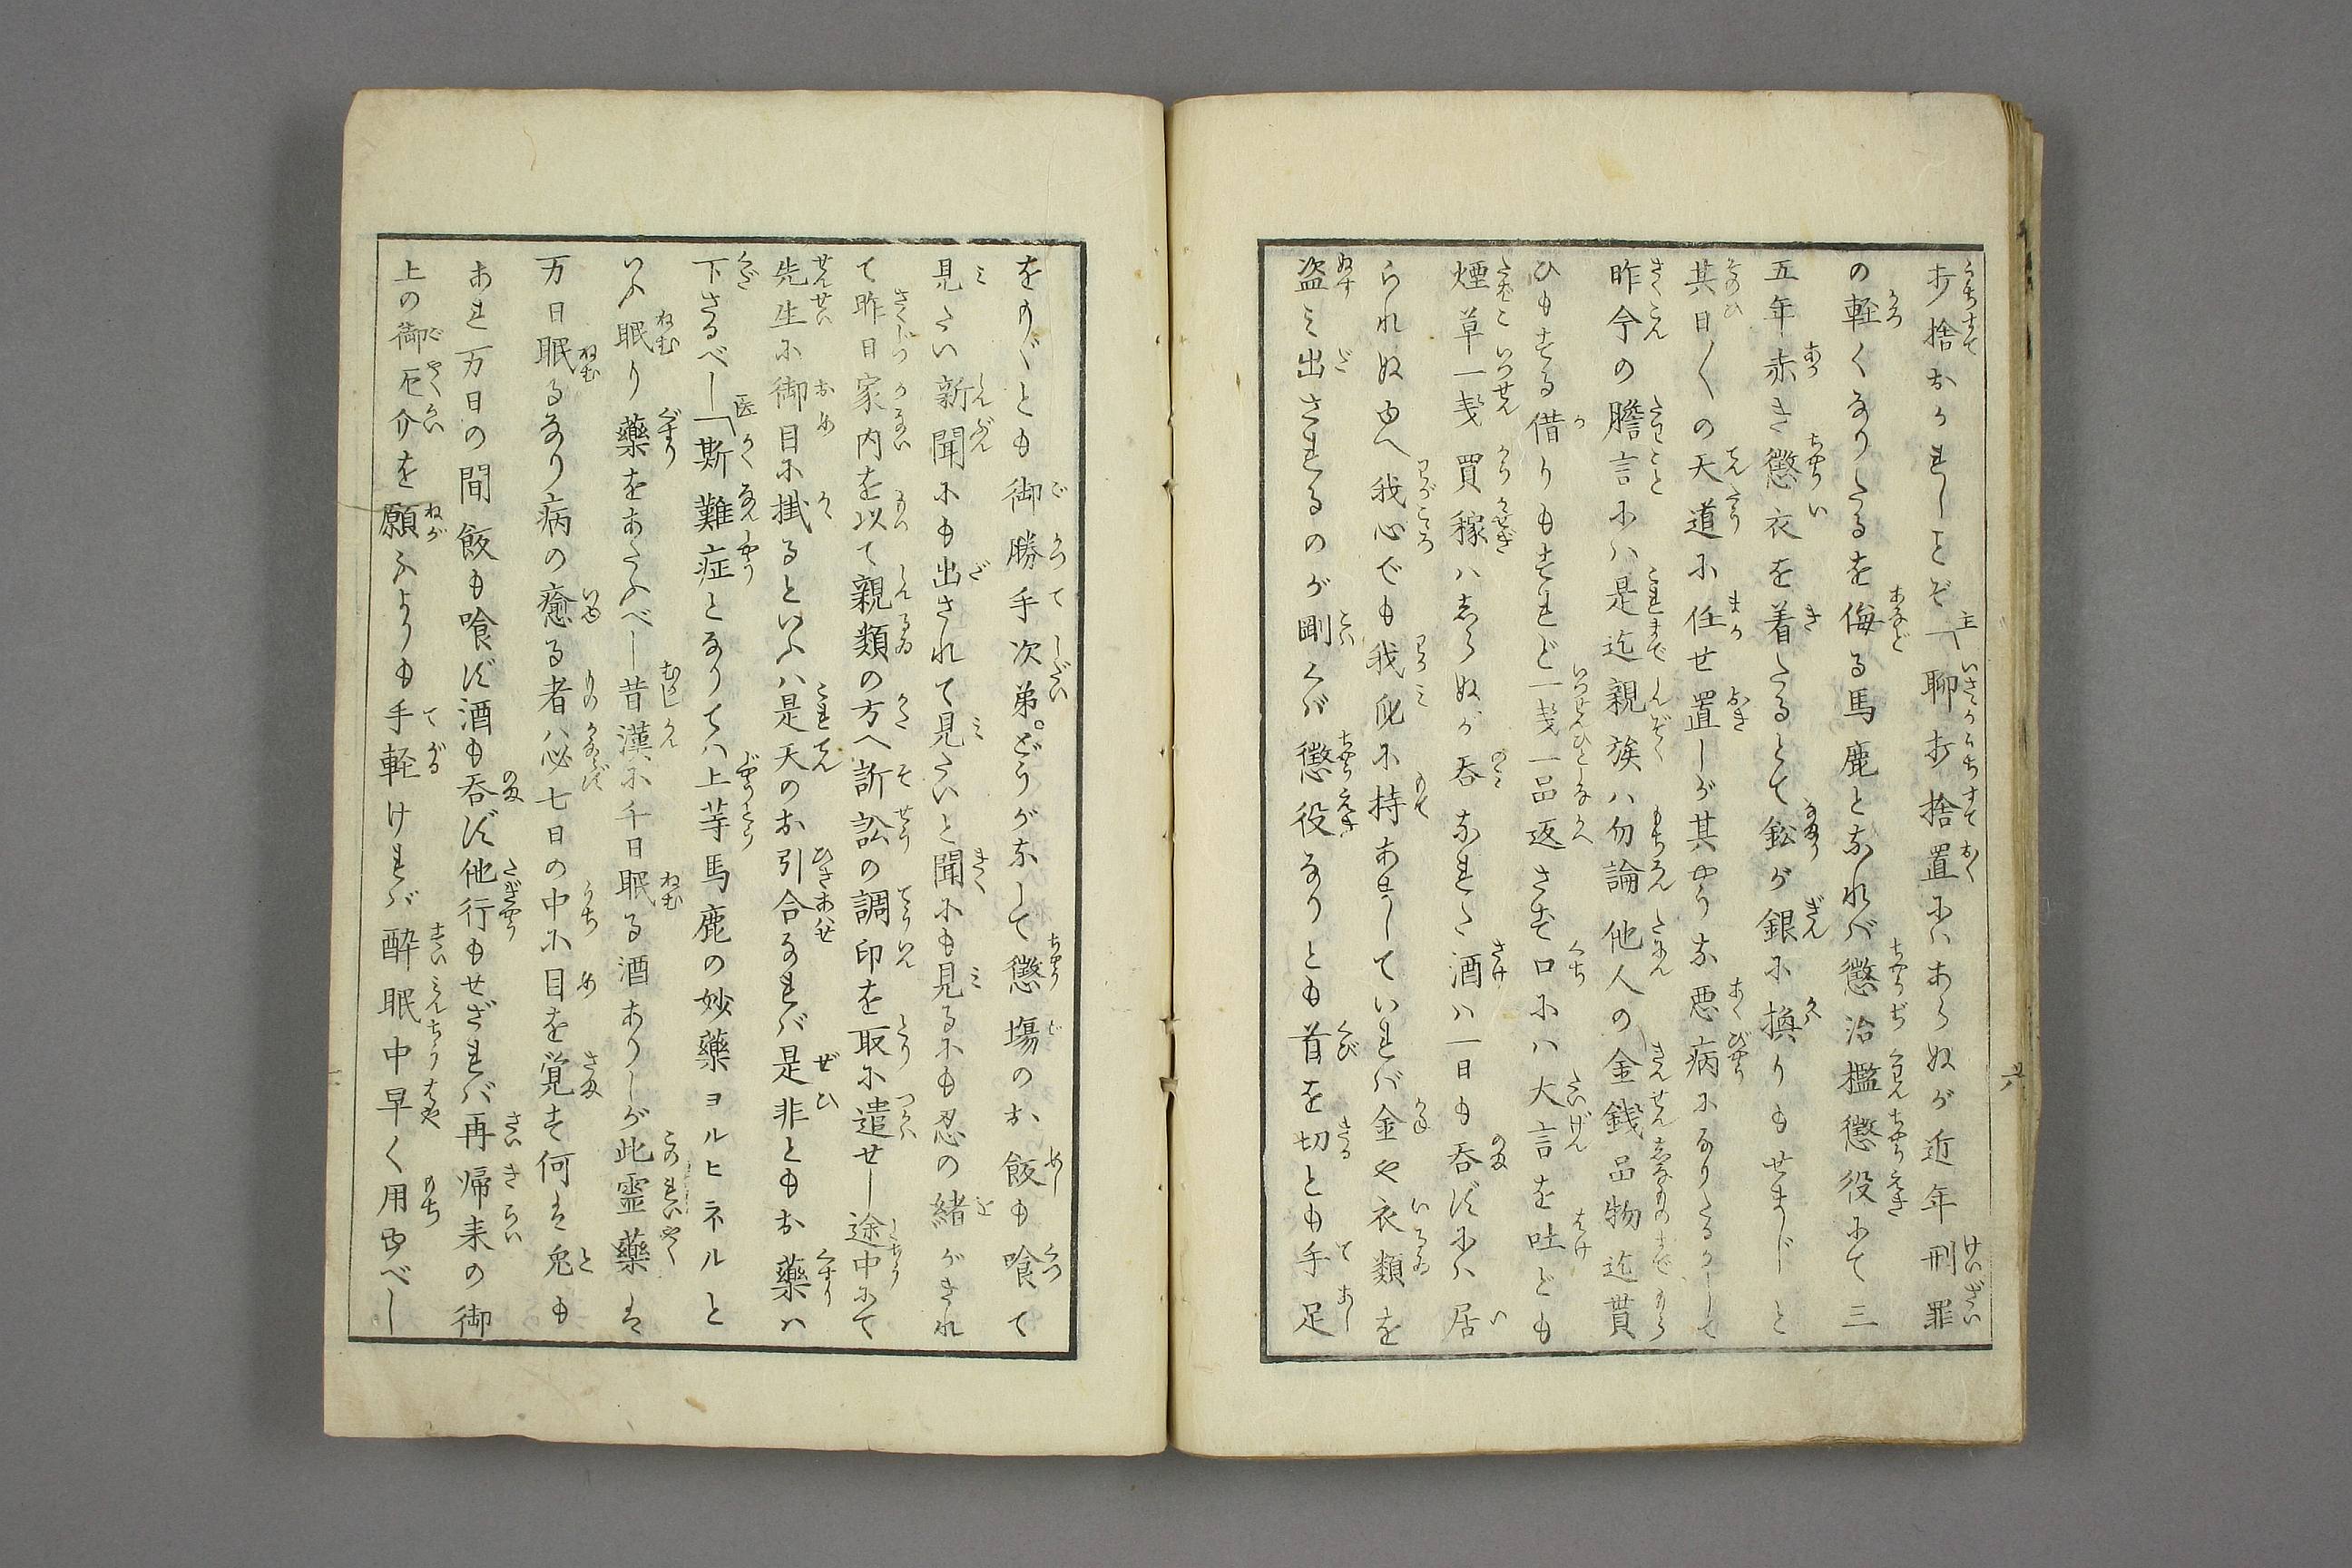 打捨おかれしことぞ「聊打捨置にはあらぬが近年刑罪
の軽くなりたるを侮る馬鹿となれば懲治檻懲役にて三
五年赤き懲衣を着たるとて鉛が銀に換りもせまじと
其日〱の天道に任せ置しが其やうな悪病になりたるかして
昨今の膽言には是迄親族は勿論他人の金銭品物迄貰
ひもする借りもすれど一銭一品返さず口には大言を吐ども
煙草一銭買稼はしらぬが呑なれた酒は一日も呑ずには居
られぬゆへ我心でも我身に持あましていれば金や衣類を
盗み出されるのが剛くば懲役なりとも首を切とも手足
六
をのぐとも御勝手次弟。どうがなして懲場のお飯も喰て
見たい新聞にも出されて見たいと聞にも見るにも忍の緒がきれ
て昨日家内を以て親類の方へ訴訟の調印を取に遣せし途中にて
先生に御目に掛るといふは是天のお引合なれば是非ともお薬は
下さるべし「斯難症となりては上等馬鹿の妙薬ヨルヒネルと
いふ眠り薬をあたふべし昔漢に千日眠る酒ありしが此霊薬は
万日眠るなり病の癒る者は必七日の中に目を覚す何は兎も
あれ万日の間飯も喰ず酒も呑ず他行もせざれば再帰来の御
上の御厄介を願ふよりも手軽ければ酔眠中早く用ゆべし